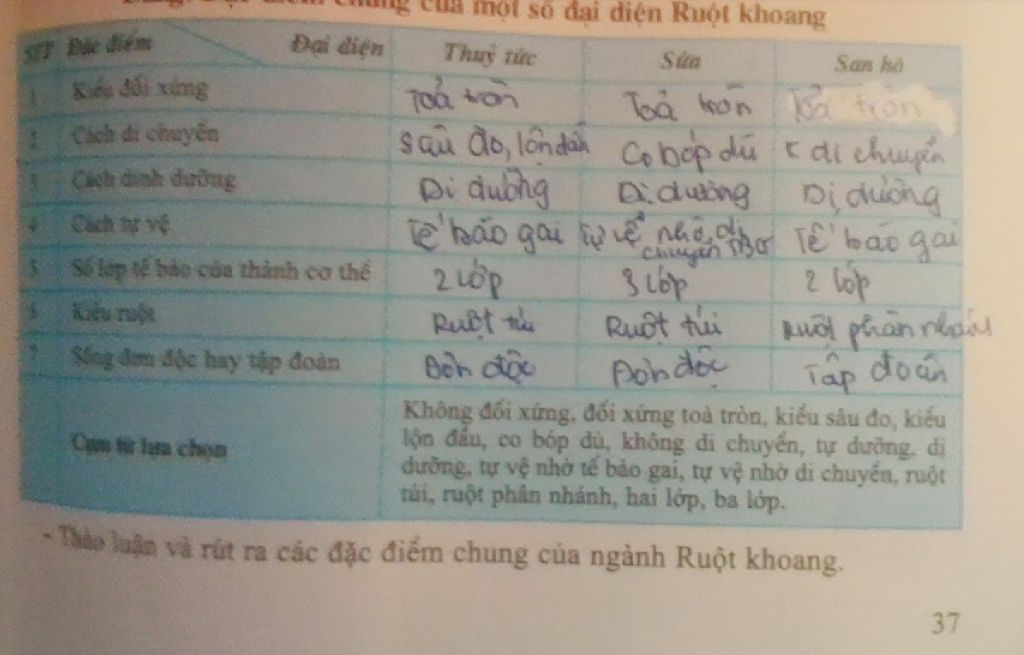 Đặc điểm chung của một số đại diện Ruột khoang
STT Đặc điểm Đại diện Thuỷ tức Sứa San hô
1 Kiểu đối xứng Toả tròn Toả tròn Toả tròn
2 Cách di chuyển Sâu đo, lộn đầu Co bóp dù k di chuyển
3 Cách dinh dưỡng Dị dưỡng Dị dưỡng Dị dưỡng
4 Cách tự vệ Tế bào gai Tự vệ nhờ di chuyển Tế bào gai
5 Số lớp tế bào của thành cơ thể 2 lớp 3 lớp 2 lớp
6 Kiểu ruột Ruột túi Ruột túi Ruột phân nhánh
7 Sống đơn độc hay tập đoàn Đơn độc Đơn độc Tập đoàn
Cụm từ lựa chọn
Không đối xứng, đối xứng toả tròn, kiểu sâu đo, kiểu
lộn đầu, co bóp dù, không di chuyển, tự dưỡng, dị
dưỡng, tự vệ nhờ tế bào gai, tự vệ nhờ di chuyển, ruột
túi, ruột phân nhánh, hai lớp, ba lớp.
- Thảo luận và rút ra các đặc điểm chung của ngành Ruột khoang.
37